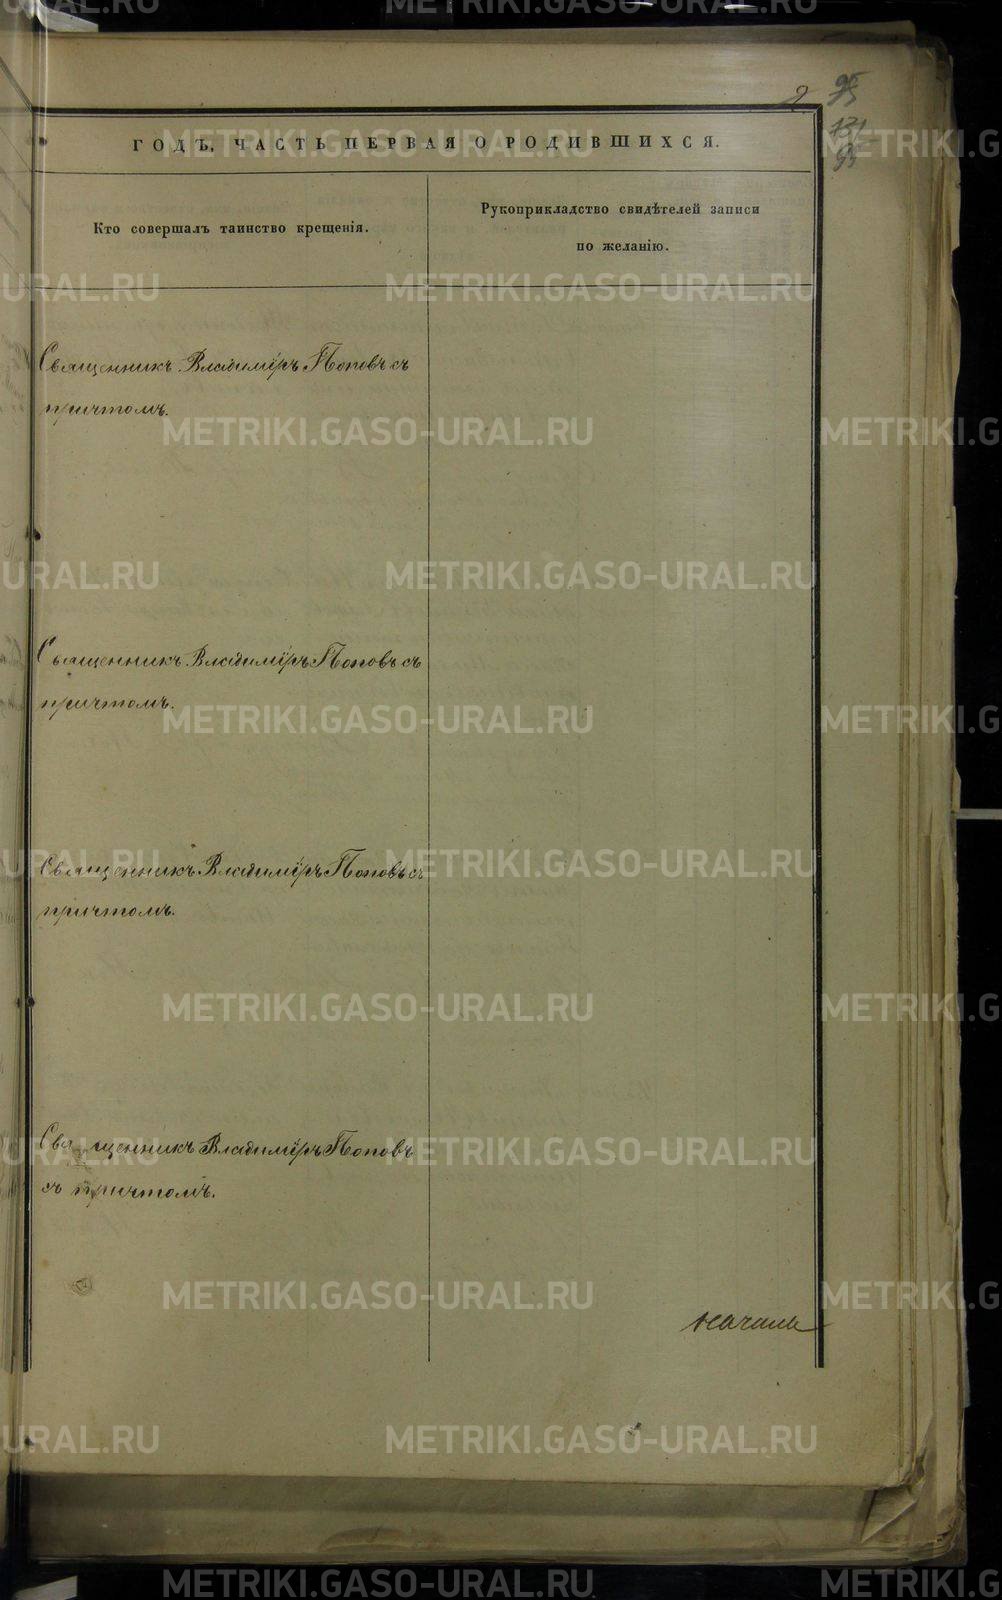 2
95
131
95
ГОДЪ. ЧАСТЬ ПЕРВАЯ О РОДИВШИХСЯ.
Кто совершалъ таинство крещенія.
Рукоприкладство свидѣтелей записи
по желанію.
Священникъ Владиміръ Поповъ съ
причтомъ.
Священникъ Владиміръ Поповъ съ
причтомъ.
Священникъ Владиміръ Поповъ съ
причтомъ.
Священникъ Владиміръ Поповъ
съ причтомъ.
METRIKI.GASO-URAL.RU